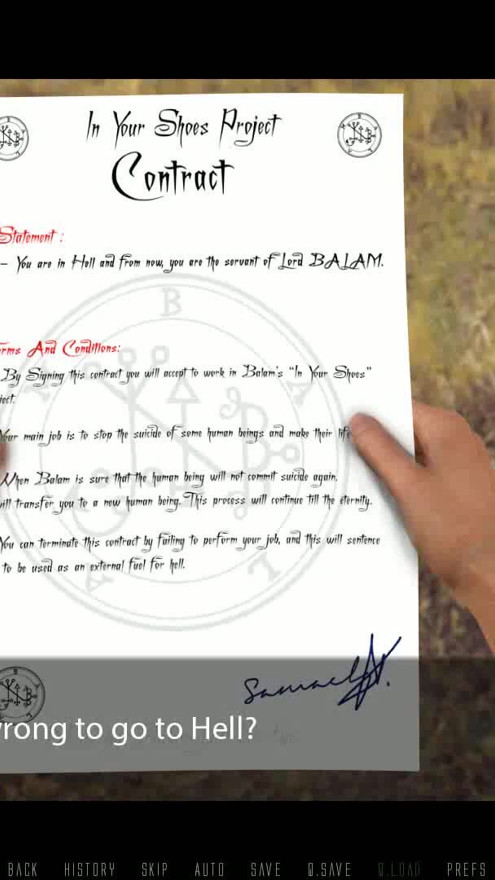 In Your Shoes Project
Contract
Statement :
- You are in Hell and from now, you are the servant of Lord BALAM.
rms And Conditions:
By Signing this contract you will accept to work in Balam's "In Your Shoes"
ject.
Your main job is to stop the suicide of some human beings and make their life
When Balam is sure that the human being will not commit suicide again,
will transfer you to a new human being. This process will continue till the eternity.
You can terminate this contract by failing to perform your job, and this will sentence
to be used as an external fuel for hell.
B
A
L
A
Samael
wrong to go to Hell?
BACK HISTORY SKIP AUTO SAVE Q.SAVE Q.LOAD PREFS